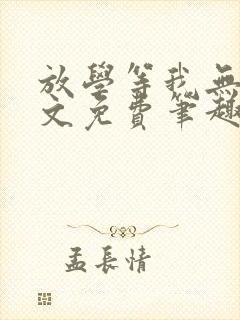 放學等我無
文免費筆趣
孟長情